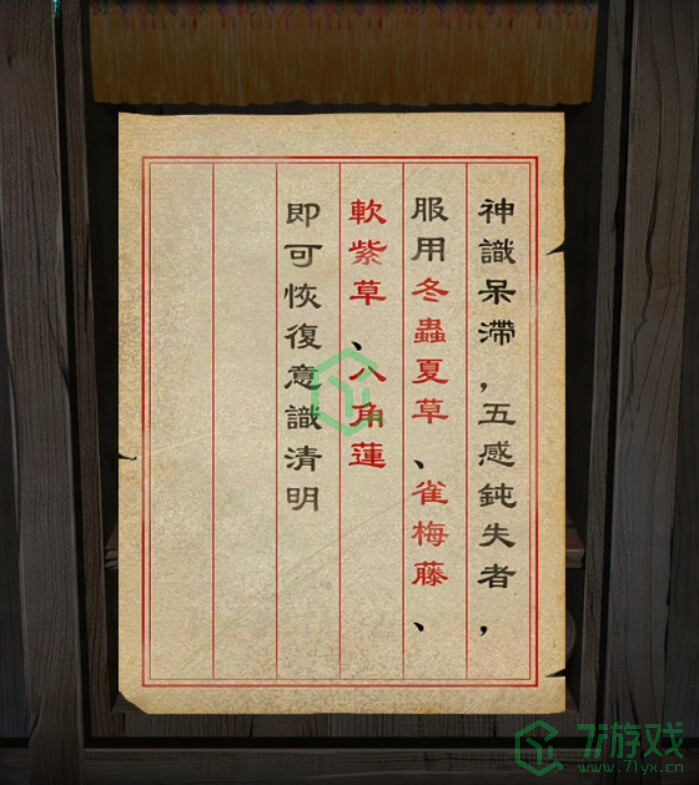 神識呆滯，五感鈍失者，
服用冬蟲夏草、雀梅藤、
軟紫草、八角蓮
即可恢復意識清明
7i游戏
www.71yx.cn